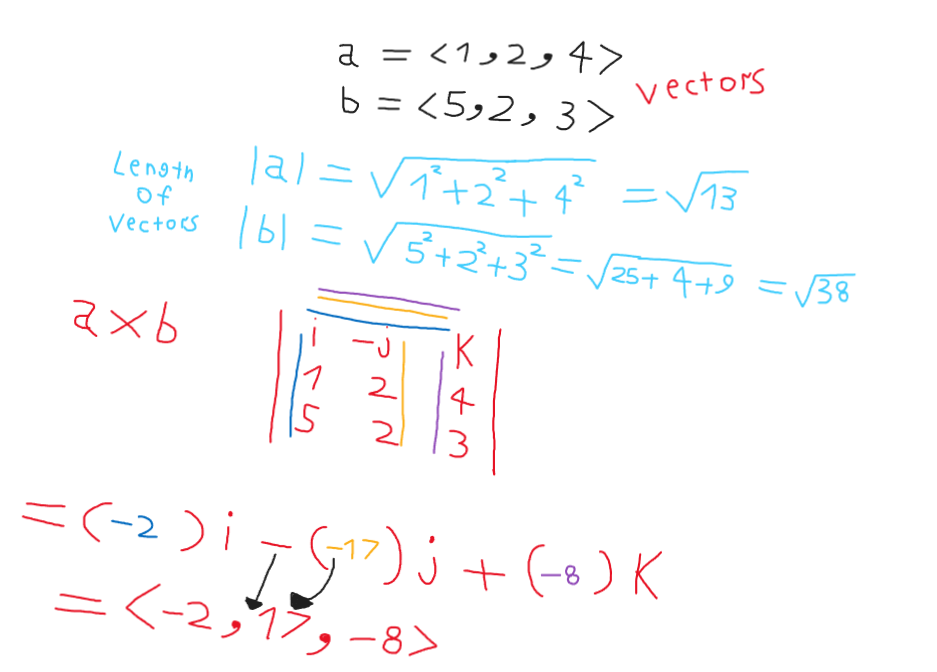 a = <1,2,4>
b = <5,2,3>
vectors
Length
of
vectors
|a| = √(1²+2²+4²) = √13
|b| = √(5²+2²+3²) = √(25+4+9) = √38
a×b
i -j K
1 2 4
5 2 3
=(-2)i-(-17)j+(-8)K
=<-2,17,-8>